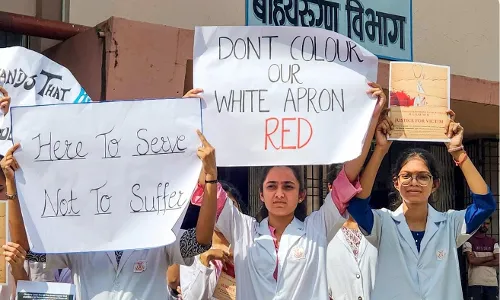 बाह्यरुग्ण विभाग
ANDS THAT
DONT COLOUR
OUR
WHITE APRON
RED
JUSTICE FOR VICTIM
Here To Serve
Not To Suffer